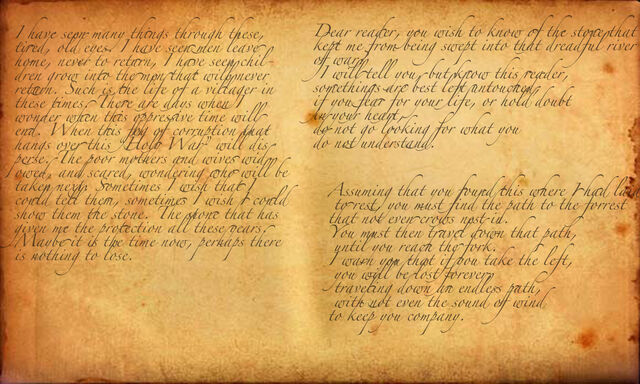 I have seen many things through these,
tired, old eyes. I have seen men leave
home, never to return, I have seen chil-
dren grow into the men that will never
return. Such is the life of a villager in
these times. There are days when I
wonder when this oppressive time will
end. When this fog of corruption that
hangs over this "Holy War" will dis
perse. The poor mothers and wives wid
owed, and scared, wondering who will be
taken next. Sometimes I wish that I
could tell them, sometimes I wish I could
show them the stone. The stone that has
given me the protection all these years.
Maybe it is the time now, perhaps there
is nothing to lose.
Dear reader, you wish to know of the stone that
kept me from being swept into that dreadful river
of war.
I will tell you, but know this reader,
some things are best left untouched,
if you fear for your life, or hold doubt
in your heart,
do not go looking for what you
do not understand.
Assuming that you found this where I had laid
to rest, you must find the path to the forrest
that not even crows nest in.
You must then travel down that path,
until you reach the fork.
I warn you that if you take the left,
you will be lost forever,
traveling down an endless path,
with not even the sound off wind
to keep you company.